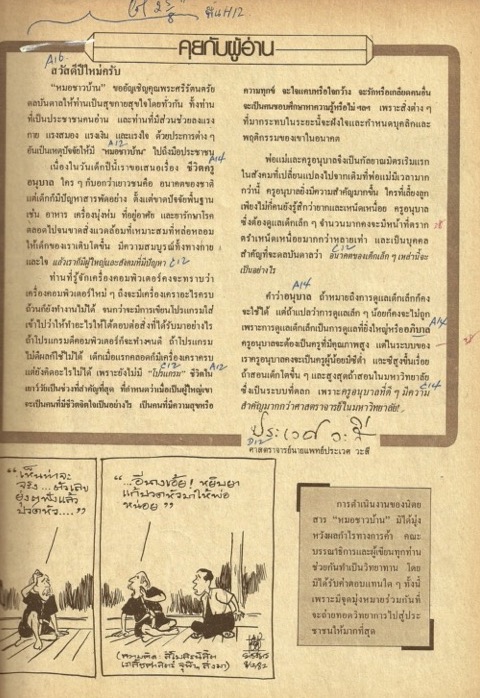 คุยกับผู้อ่าน
A16
สวัสดีปีใหม่ครับ
"หมอชาวบ้าน" ขออัญเชิญคุณพระศรีรัตนตรัย
ดลบันดาลให้ท่านเป็นสุขกายสุขใจโดยทั่วกัน ทั้งท่าน
ที่เป็นประชาชนคนอ่าน และท่านที่มีส่วนช่วยลงแรง
กาย แรงสมอง แรงเงิน และแรงใจ ด้วยประการต่าง ๆ
อันเป็นเหตุปัจจัยให้มี "หมอชาวบ้าน" ไปถึงมือประชาชน
เนื่องในวันเด็กปีนี้เราขอเสนอเรื่อง ชีวิตครู
อนุบาล ใคร ๆ ก็บอกว่าเยาวชนคือ อนาคตของชาติ
แต่เด็กก็มีปัญหาสารพัดอย่าง ตั้งแต่ขาดปัจจัยพื้นฐาน
เช่น อาหาร เครื่องนุ่งห่ม ที่อยู่อาศัย และยารักษาโรค
ตลอดไปจนขาดสิ่งแวดล้อมที่เหมาะสมที่หล่อหลอม
ให้เด็กของเราเติบโตขึ้น มีความสมบูรณ์ทั้งทางกาย
และใจ แล้วเราก็มีผู้ใหญ่และสังคมที่มีปัญหา C12
ท่านที่รู้จักเครื่องคอมพิวเตอร์คงจะทราบว่า
เครื่องคอมพิวเตอร์ใหม่ ๆ ถึงจะมีเครื่องเคราอะไรครบ
ถ้วนก็ยังทำงานไม่ได้ จนกว่าจะมีการเขียนโปรแกรมใส่
เข้าไปว่าให้ทำอะไรให้ได้ตอบต่อสิ่งที่ได้รับมาอย่างไร
ถ้าโปรแกรมดีคอมพิวเตอร์ก็จะทำงานดี ถ้าโปรแกรม
ไม่ดีผลก็ใช้ไม่ได้ เด็กเมื่อแรกคลอดก็มีเครื่องเคราครบ
แต่ยังคิดอะไรไม่ได้ เพราะยังไม่มี "โปรแกรม" ชีวิตใน
เยาว์วัยเป็นช่วงที่สำคัญที่สุด ที่กำหนดว่าเมื่อเป็นผู้ใหญ่เขา
จะเป็นคนที่มีชีวิตจิตใจเป็นอย่างไร เป็นคนที่มีความสุขหรือ
ความทุกข์ จะใจแคบหรือใจกว้าง จะรักหรือเกลียดคนอื่น
จะเป็นคนชอบศึกษาหาความรู้หรือไม่ ฯลฯ เพราะสิ่งต่าง ๆ
ที่มากระทบในระยะนี้จะฝังใจและกำหนดบุคลิกและ
พฤติกรรมของเขาในอนาคต
พ่อแม่และครูอนุบาลจึงเป็นกัลยาณมิตรเริ่มแรก
ในสังคมที่เปลี่ยนแปลงไปจากเดิมที่พ่อแม่มีเวลามาก
กว่านี้ ครูอนุบาลยิ่งมีความสำคัญมากขึ้น ใครที่เลี้ยงลูก
เพียงไม่กี่คนยังรู้สึกว่ายากและเหน็ดเหนื่อย ครูอนุบาล
ซึ่งต้องดูแลเด็กเล็ก ๆ จำนวนมากคงจะมีหน้าที่ตราก
ตรำเหน็ดเหนื่อยมากกว่าหลายเท่า และเป็นบุคคล
สำคัญที่จะดลบันดาลว่า อนาคตของเด็กเล็ก ๆ เหล่านี้จะ
เป็นอย่างไร
A14
คำว่าอนุบาล ถ้าหมายถึงการดูแลเด็กเล็กก็คง
จะใช้ได้ แต่ถ้าแปลว่าการดูแลเล็ก ๆ น้อยก็คงจะไม่ถูก
เพราะการดูแลเด็กเล็กเป็นการดูแลที่ยิ่งใหญ่หรืออภิบาล
ครูอนุบาลจะต้องเป็นครูที่มีคุณภาพสูง แต่ในระบบของ
เราครูอนุบาลคงจะเป็นครูผู้น้อยมีซีต่ำ และซีสูงขึ้นเรื่อย
ถ้าสอนเด็กโตขึ้น ๆ และสูงสุดถ้าสอนในมหาวิทยาลัย
ซึ่งเป็นระบบที่ตลก เพราะครูอนุบาลที่ดี ๆ มีความ
สำคัญมากกว่าศาสตราจารย์ในมหาวิทยาลัย!
ประเวศ วะสี
ศาสตราจารย์นายแพทย์ประเวศ วะสี
"เห็นท่าจะ
จริง...ตัวเสีย
ยุ่งตาขึ้นแล้ว
ปวดหัว...."
"...อีนางเอ้ย! หยิบยา
แก้ปวดหัวมาให้พ่อ
หน่อย"
การดำเนินงานของนิตย
สาร "หมอชาวบ้าน" มิได้มุ่ง
หวังผลกำไรทางการค้า คณะ
บรรณาธิการและผู้เขียนทุกท่าน
ช่วยกันทำเป็นวิทยาทาน โดย
มิได้รับค่าตอบแทนใด ๆ ทั้งนี้
เพราะมีจุดมุ่งหมายร่วมกันที่
จะถ่ายทอดวิทยาการไปสู่ประ
ชาชนให้มากที่สุด